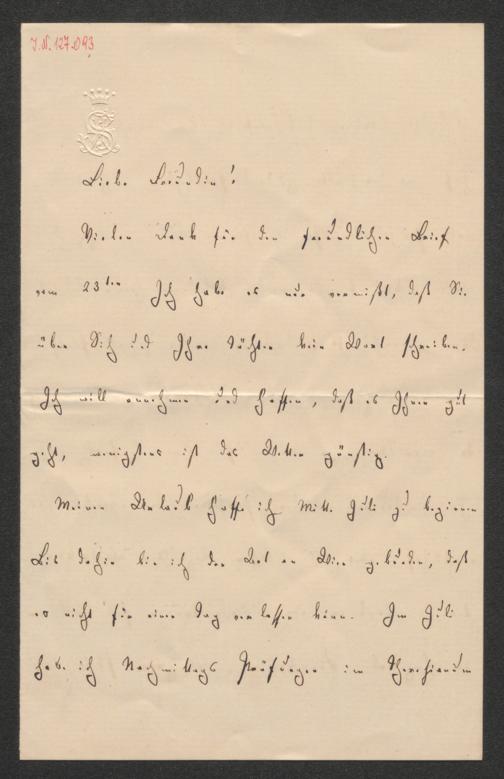 I.N. 127.093
Liebe Freundin!
Vielen Dank für den freundlichen Brief
vom 23ten Ich habe es nur vermißt, daß Sie
über Sich und Ihre Töchter kein Wort schreiben.
Ich will annehmen und hoffen, daß es Ihnen gut
geht, wenigstens ist das Wetter günstig.
Meinen Urlaub hoffe ich Mitte Juli zu beginnen
Bis dahin bin ich der Art an Wien gebunden, daß
es nicht für einen Tag verlassen kann. Im Juli
habe ich Nachmittags Prüfungen im Theresianum